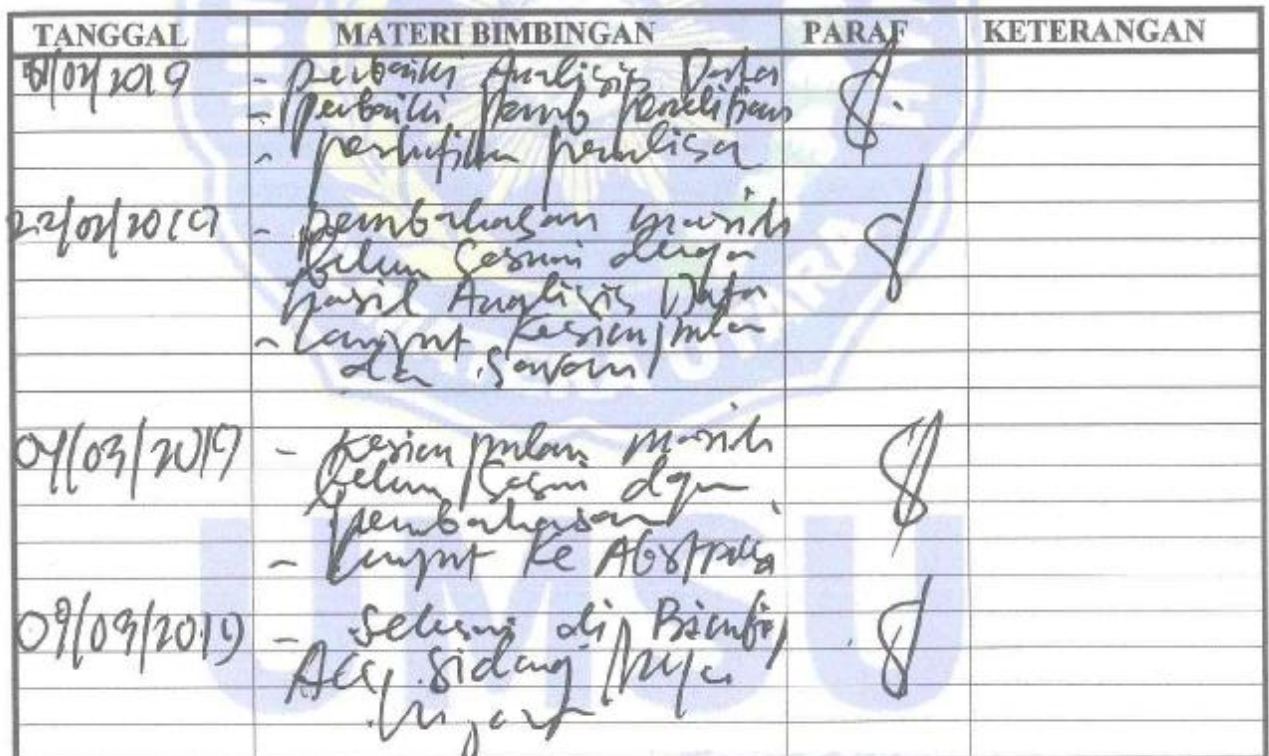 TANGGAL MATERI BIMBINGAN PARAF KETERANGAN
/02/2019 - perbaiki Analisis Data
- perbaiki pemb penelitian
- perhatikan penulisan
22/02/2019 - pembahasan masih
belum sesuai dengan
hasil Analisis Data
- Lanjut Kesimpulan
dan Saran
04/03/2019 - Kesimpulan masih
belum sesuai dgn
pembahasan
- Lanjut Ke Abstrak
09/03/2019 - Selesai di Bimbing
Acc, Sidang Meja
Hijau
UMSU